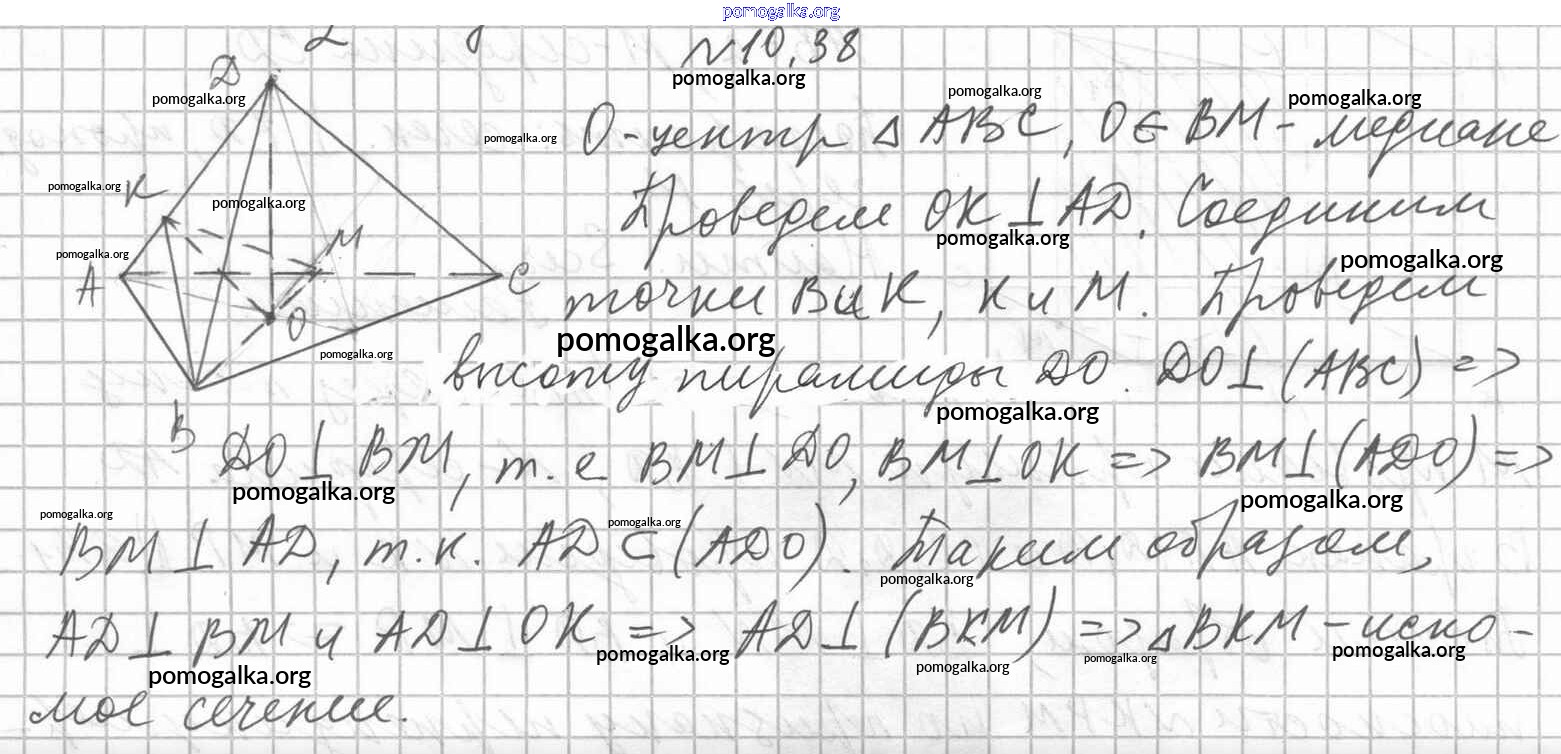 pomogalka.org
№10.38
pomogalka.org
D
pomogalka.org
pomogalka.org
pomogalka.org
pomogalka.org
О-центр △ ABC, O∈ BM - медиане
pomogalka.org
K
pomogalka.org
Проведем OK⊥AD. Соединим
pomogalka.org
pomogalka.org
M
pomogalka.org
A
C
точки B и K, K и M. Проведем
O
pomogalka.org
pomogalka.org
высоту пирамиды DO. DO⊥(ABC) =>
pomogalka.org
B
DO⊥BM, т.е BM⊥DO, BM⊥OK => BM⊥(ADO) =>
pomogalka.org
pomogalka.org
pomogalka.org
pomogalka.org
BM⊥AD, т.к. AD⊂(ADO). Таким образом,
pomogalka.org
AD⊥BM и AD⊥OK => AD⊥(BKM) => △BKM - иско-
pomogalka.org
pomogalka.org
pomogalka.org
pomogalka.org
pomogalka.org
мое сечение.